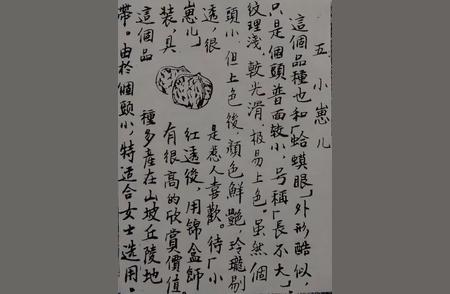 五 小崽儿
這個品種也和「蛤蟆眼」外形酷似，
只是個頭普面較小，号稱「長不大」。
紋理淺，較光滑，极易上色。虽然個
頭小，但上色後，顔色鮮艷，玲瓏剔
透，很是惹人喜歡。待「小
崽儿」红透後，用锦盒師
装，具有很高的欣賞價值
這個品種多產在山坡丘陵地
帶。由於個頭小，特适合女士選用。